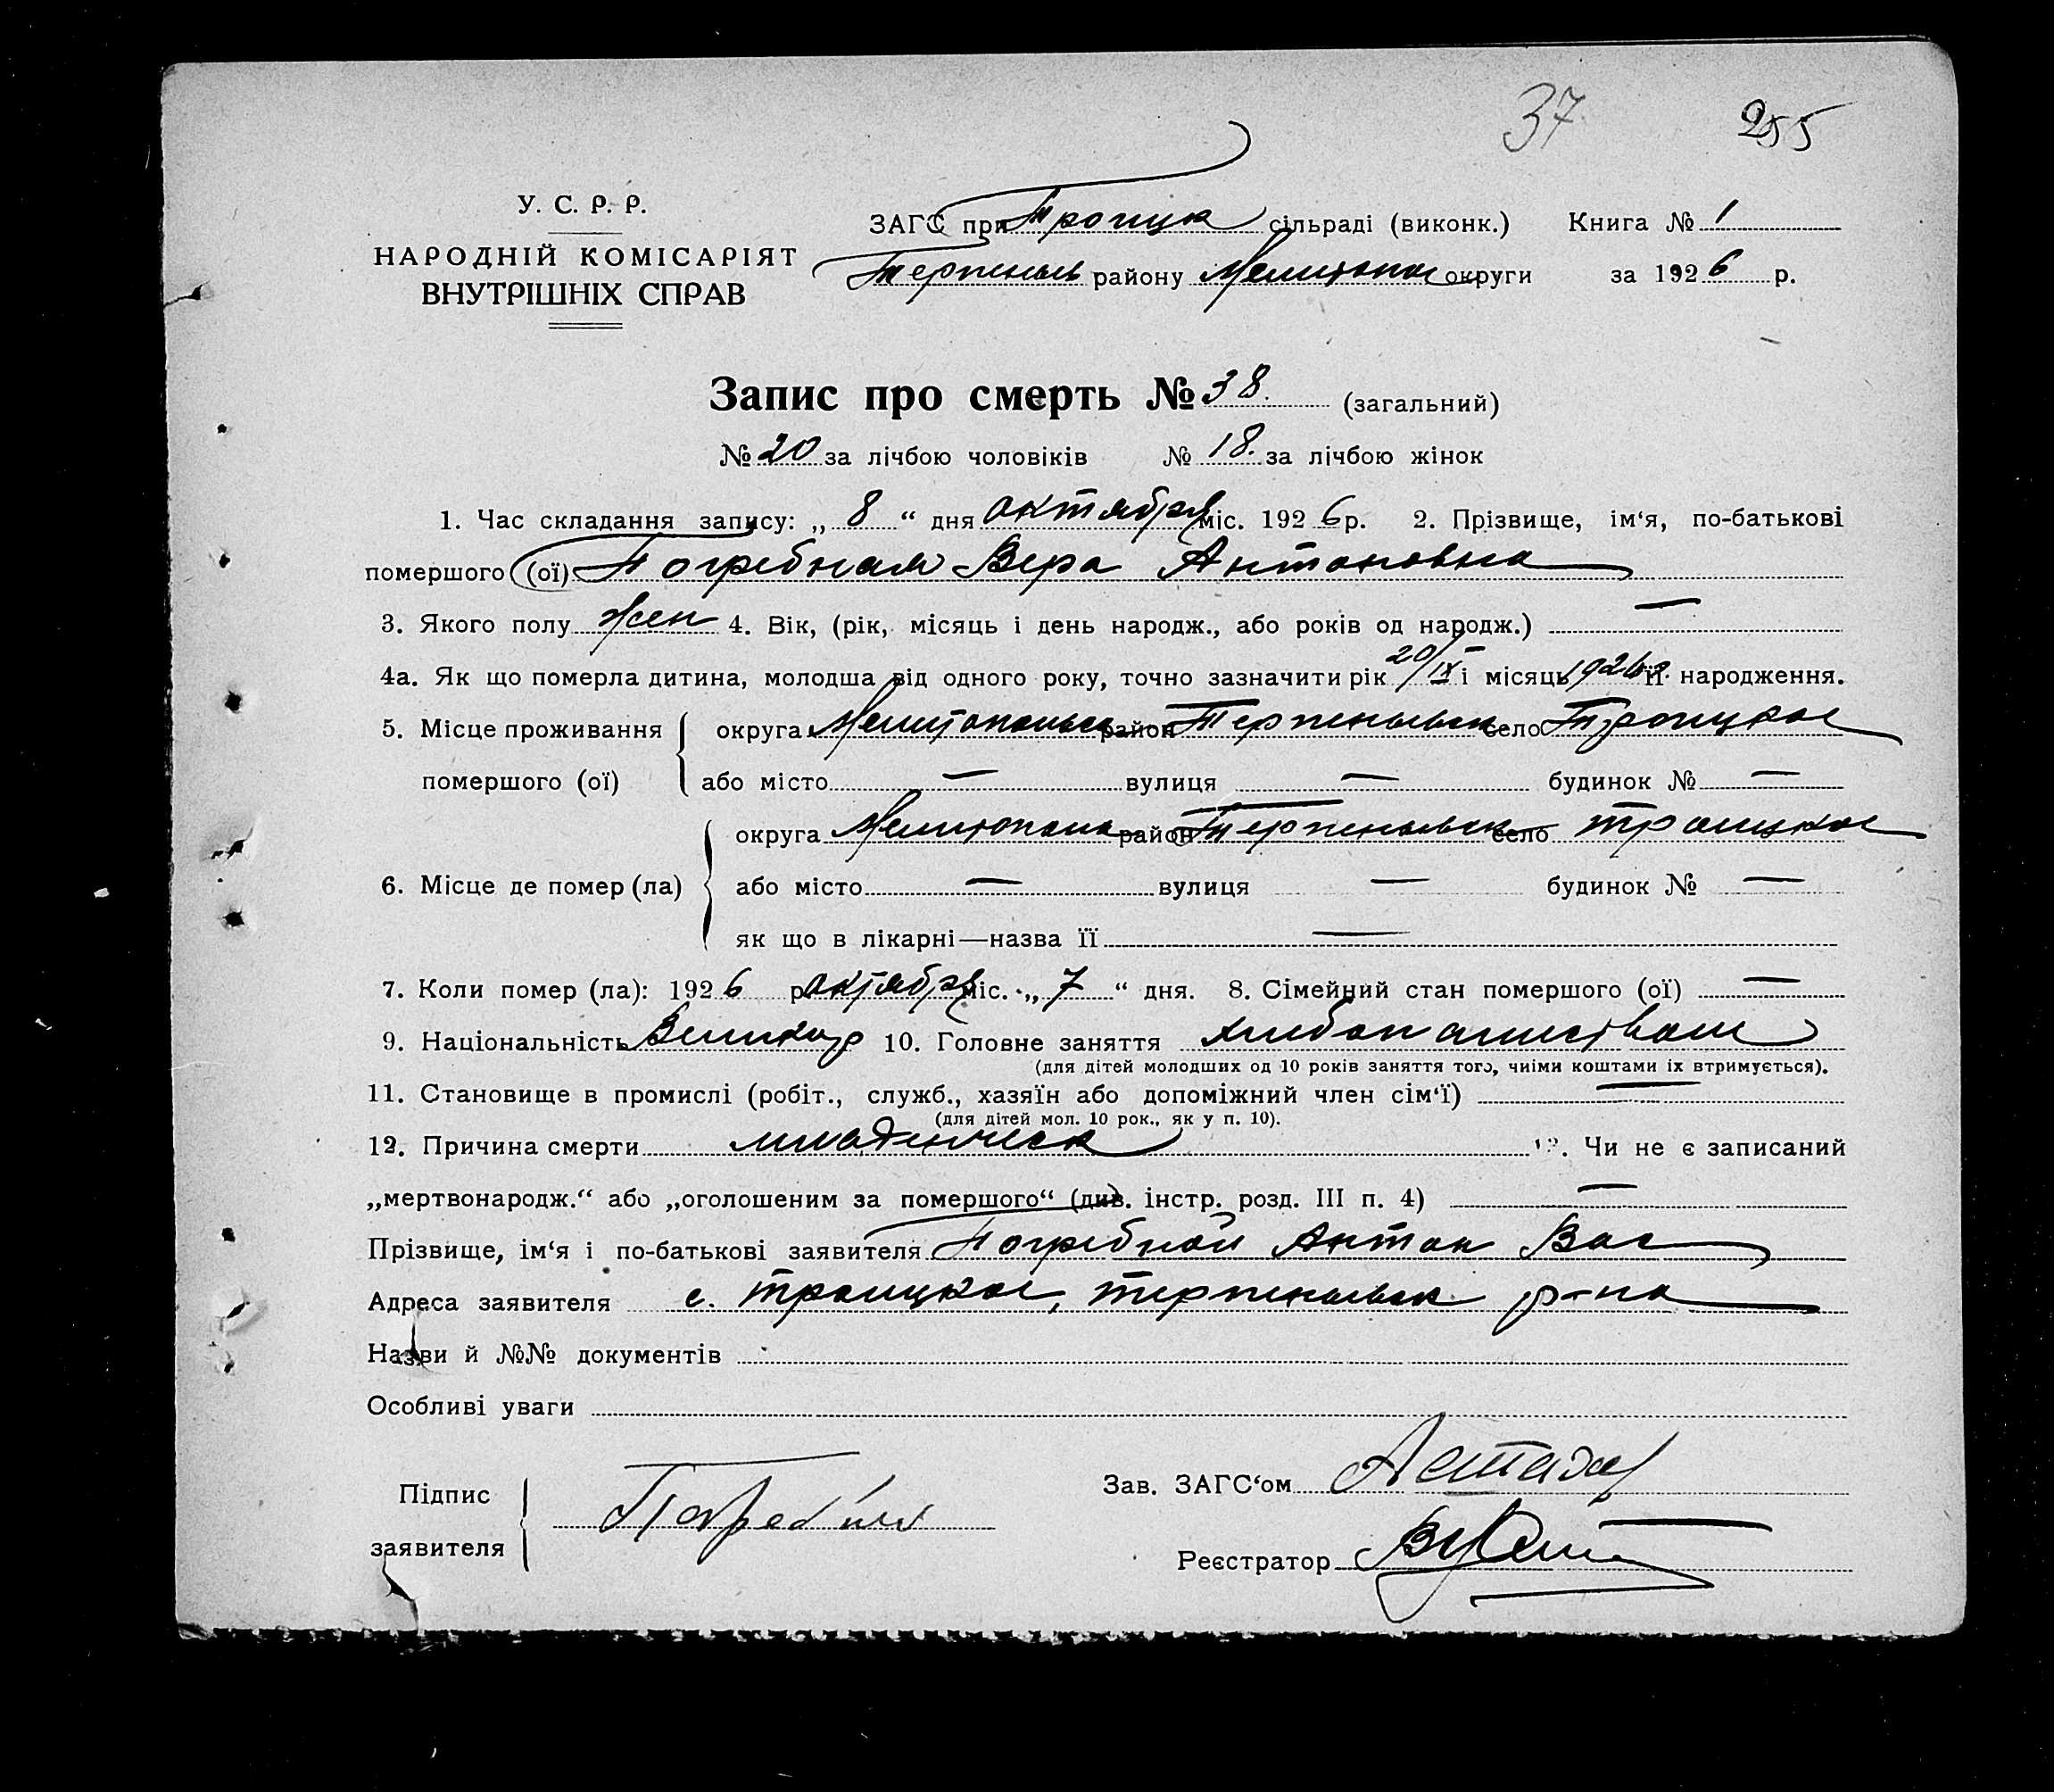 37 255
У. С. Р. Р.
НАРОДНІЙ КОМІСАРІЯТ
ВНУТРІШНІХ СПРАВ
ЗАГС при Троицк сільраді (виконк.) Книга № 1
Терпеньев району Мелитопол округи за 1926 р.
Запис про смерть № 38. (загальний)
№ 20 за лічбою чоловіків № 18. за лічбою жінок
1. Час складання запису: „ 8 “ дня октября міс. 1926 р. 2. Прізвище, ім‘я, по-батькові
помершого (ої) Погребная Вера Антоновна
3. Якого полу жен 4. Вік, (рік, місяць і день народж., або років од народж.) —
4а. Як що померла дитина, молодша від одного року, точно зазначити рік 20/IX і місяць 1926 г. її народження.
5. Місце проживання помершого (ої)
округа Мелитопольск район Терпеньевск село Троицкое
або місто — вулиця — будинок № —
6. Місце де помер (ла)
округа Мелитополь район Терпеньевск село Троицкое
або місто — вулиця — будинок № —
як що в лікарні—назва її —
7. Коли помер (ла): 1926 р октября міс. „ 7 “ дня. 8. Сімейний стан помершого (ої) —
9. Національність Великор 10. Головне заняття
(для дітей молодших од 10 років заняття того, чиїми коштами їх втримується).
11. Становище в промислі (робіт., служб., хазяїн або допоміжний член сім‘ї) —
(для дітей мол. 10 рок., як у п. 10).
12. Причина смерти младенческ 13. Чи не є записаний
„мертвонародж.“ або „оголошеним за помершого“ (див. інстр. розд. III п. 4) —
Прізвище, ім‘я і по-батькові заявителя Погребной Антон Вас
Адреса заявителя с. Троицкое, Терпеньевск р-на
Назви й №№ документів
Особливі уваги
Підпис заявителя
Зав. ЗАГС‘ом
Реєстратор